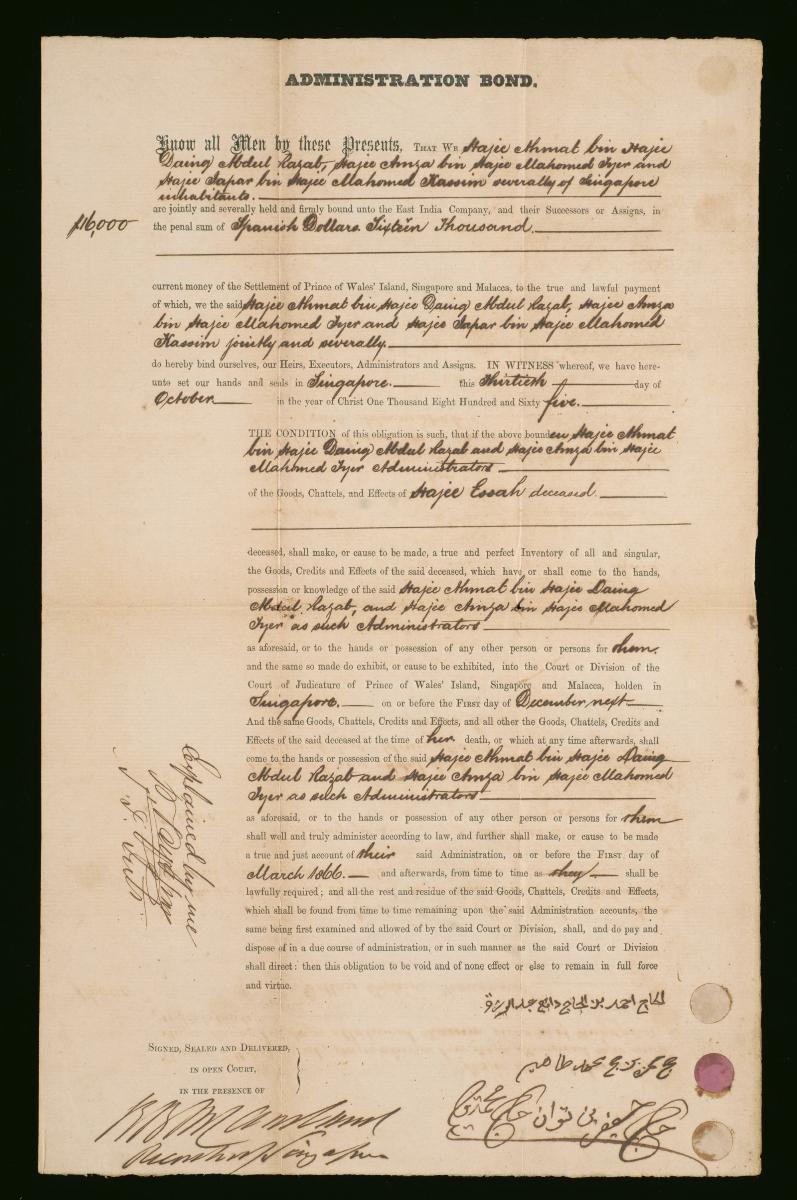 ADMINISTRATION BOND.
Know all Men by these Presents, THAT WE Hajee Ahmat bin Hajee
Daing Abdul Razab, Hajee Amza bin Hajee Mahomed Tyer and
Hajee Japar bin Hajee Mahomed Kassim severally of Singapore
inhabitants.
are jointly and severally held and firmly bound unto the East India Company, and their Successors or Assigns, in
$16,000
the penal sum of Spanish Dollars Sixteen Thousand.
current money of the Settlement of Prince of Wales' Island, Singapore and Malacca, to the true and lawful payment
of which, we the said Hajee Ahmat bin Hajee Daing Abdul Razab, Hajee Amza
bin Hajee Mahomed Tyer and Hajee Japar bin Hajee Mahomed
Kassim jointly and severally.
do hereby bind ourselves, our Heirs, Executors, Administrators and Assigns. IN WITNESS whereof, we have here-
unto set our hands and seals in Singapore. this thirtieth day of
October in the year of Christ One Thousand Eight Hundred and Sixty five.
THE CONDITION of this obligation is such, that if the above bounden Hajee Ahmat
bin Hajee Daing Abdul Razab and Hajee Amza bin Hajee
Mahomed Tyer Administrators
of the Goods, Chattels, and Effects of Hajee Essah deceased.
deceased, shall make, or cause to be made, a true and perfect Inventory of all and singular,
the Goods, Credits and Effects of the said deceased, which have or shall come to the hands,
possession or knowledge of the said Hajee Ahmat bin Hajee Daing
Abdul Razab, and Hajee Amza bin Hajee Mahomed
Tyer as such Administrators
as aforesaid, or to the hands or possession of any other person or persons for them
and the same so made do exhibit, or cause to be exhibited, into the Court or Division of the
Court of Judicature of Prince of Wales' Island, Singapore and Malacca, holden in
Singapore. on or before the FIRST day of December next
And the same Goods, Chattels, Credits and Effects, and all other the Goods, Chattels, Credits and
Effects of the said deceased at the time of her death, or which at any time afterwards, shall
come to the hands or possession of the said Hajee Ahmat bin Hajee Daing
Abdul Razab and Hajee Amza bin Hajee Mahomed
Tyer as such Administrators
as aforesaid, or to the hands or possession of any other person or persons for them
shall well and truly administer according to law, and further shall make, or cause to be made
a true and just account of their said Administration, on or before the FIRST day of
March 1866. and afterwards, from time to time as they shall be
lawfully required; and all the rest and residue of the said Goods, Chattels, Credits and Effects,
which shall be found from time to time remaining upon the said Administration accounts, the
same being first examined and allowed of by the said Court or Division, shall, and do pay and
dispose of in a due course of administration, or in such manner as the said Court or Division
shall direct: then this obligation to be void and of none effect or else to remain in full force
and virtue.
Explained by me
الحاج احمد بن الحاج دايغ عبد الرزق
SIGNED, SEALED AND DELIVERED,
IN OPEN COURT,
IN THE PRESENCE OF
محمد طاهير
حاج جعفر بن توان حاج
Recorder Singapore